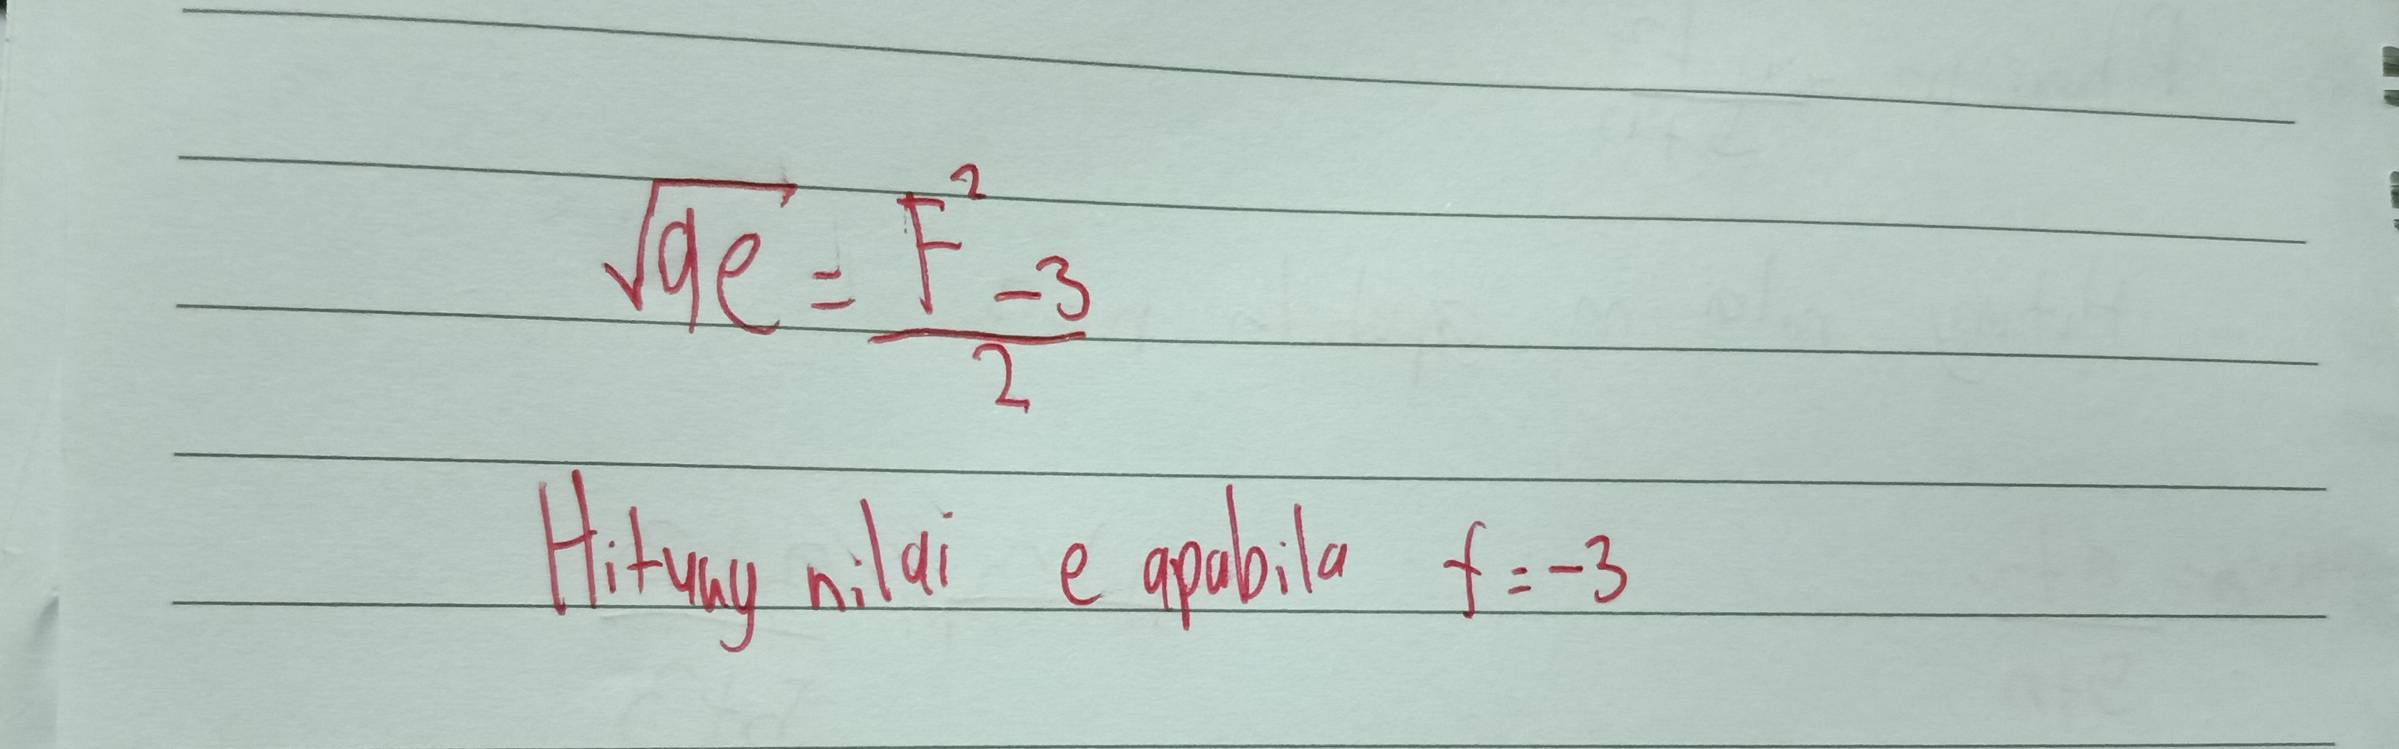 √9e = F² - 3
2
Hitung nilai e apabila f = -3